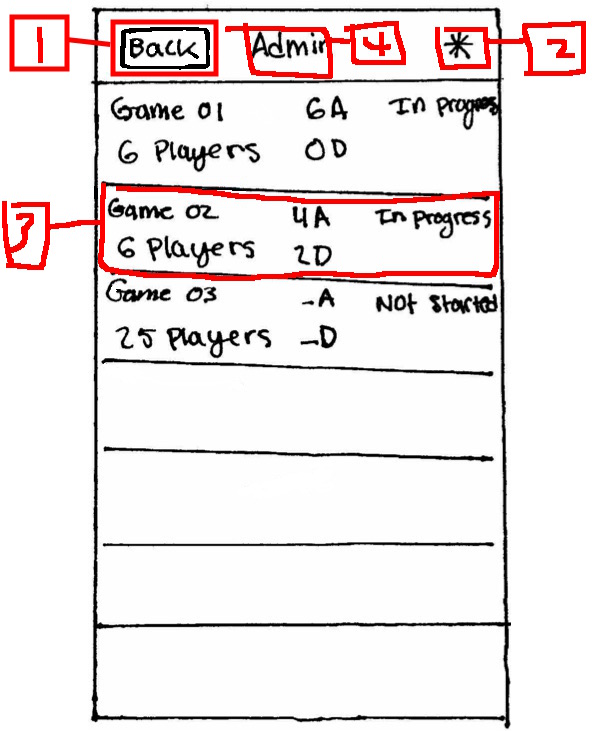 1 Back Admin 4 * 2
Game 01 6A In progress
6 Players 0D
3 Game 02 4A In progress
6 Players 2D
Game 03 -A Not Started
25 Players -D